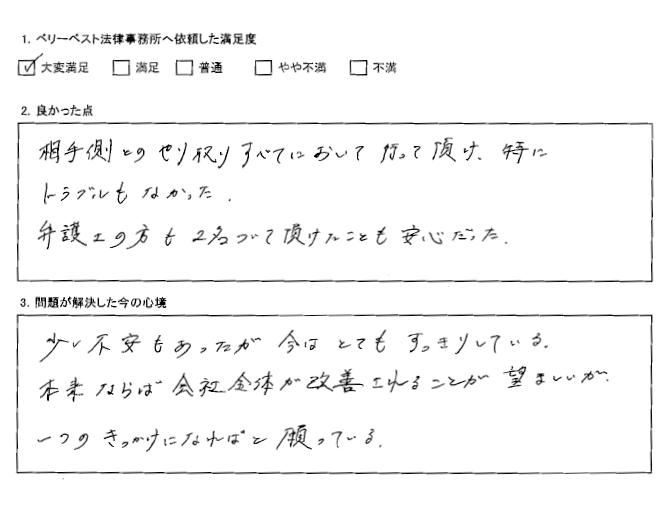 1. ベリーベスト法律事務所へ依頼した満足度
☑ 大変満足 □ 満足 □ 普通 □ やや不満 □ 不満
2. 良かった点
相手側とのやり取りすべてにおいて行って頂け、特に
トラブルもなかった.
弁護士の方も2名ついて頂けたことも安心だった.
3. 問題が解決した今の心境
少し不安もあったが今はとてもすっきりしている.
本来ならば会社全体が改善されることが望ましいが.
一つのきっかけになればと願っている.